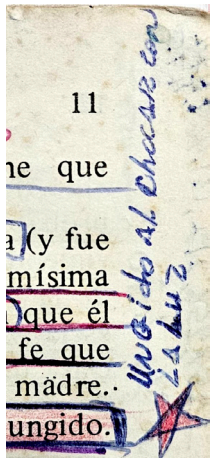 11
ne que
a (y fue
mísima
que él
fe que
madre.
ungido.
Ungido al chocar con
la luz